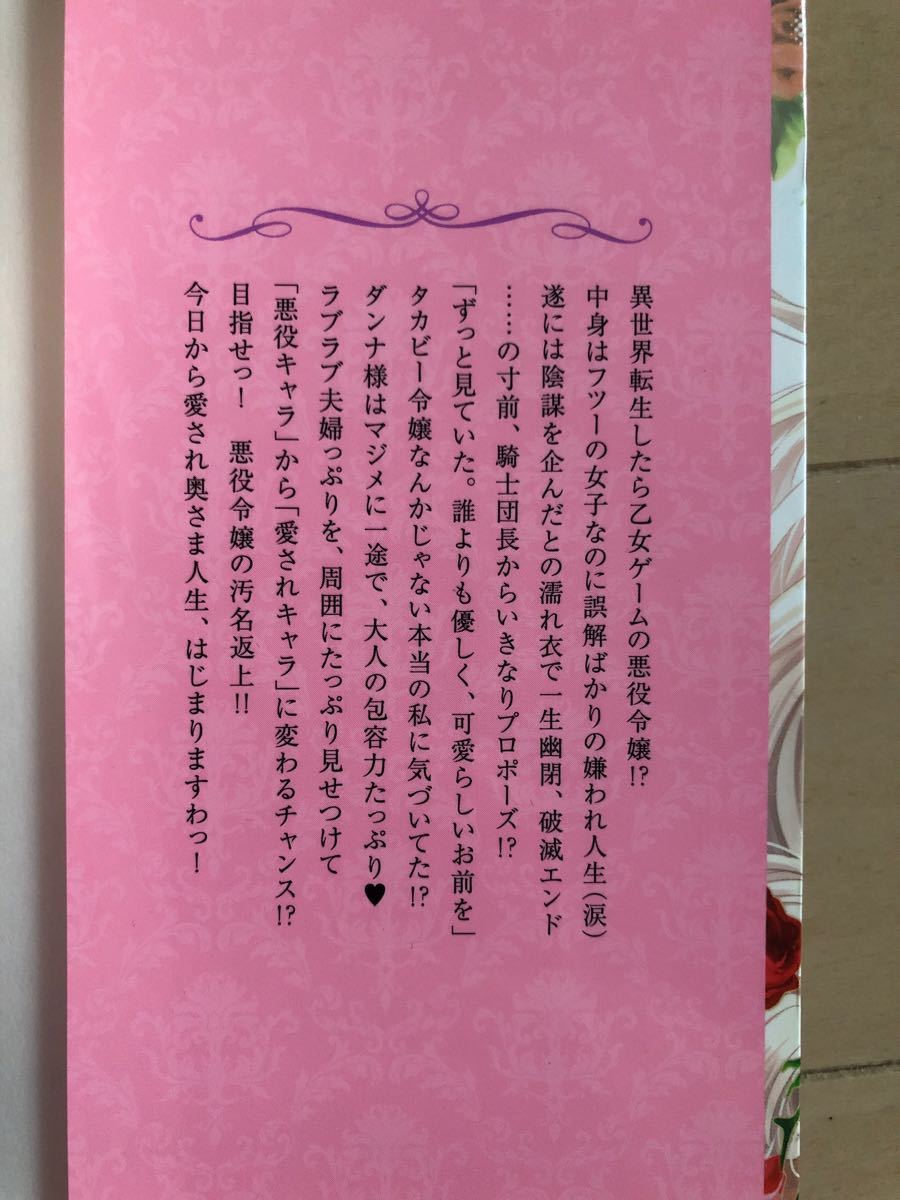 異世界転生したら乙女ゲームの悪役令嬢!?
中身はフツーの女子なのに誤解ばかりの嫌われ人生(涙)
遂には陰謀を企んだとの濡れ衣で一生幽閉、破滅エンド
……の寸前、騎士団長からいきなりプロポーズ!?
「ずっと見ていた。誰よりも優しく、可愛らしいお前を」
タカビー令嬢なんかじゃない本当の私に気づいてた!?
ダンナ様はマジメに一途で、大人の包容力たっぷり♥
ラブラブ夫婦っぷりを、周囲にたっぷり見せつけて
「悪役キャラ」から「愛されキャラ」に変わるチャンス!?
目指せっ！　悪役令嬢の汚名返上!!
今日から愛され奥さま人生、はじまりますわっ！